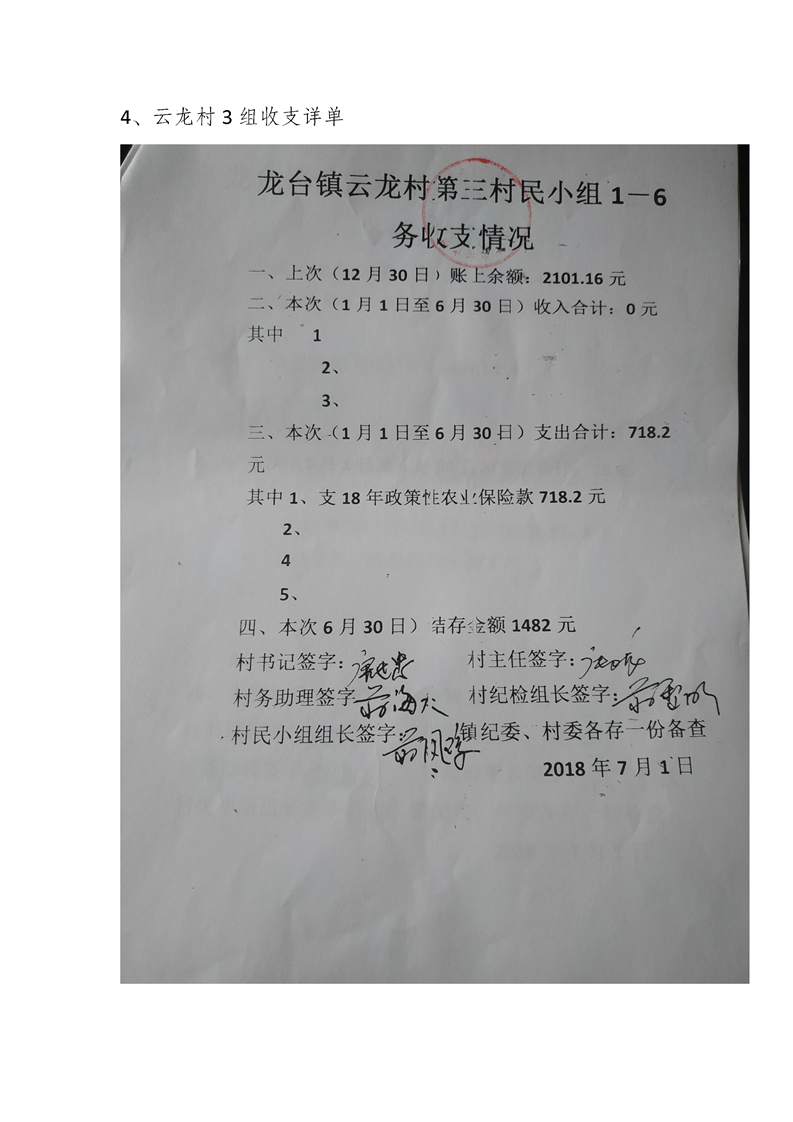 4、云龙村 3 组收支详单
龙台镇云龙村第三村民小组 1－6
务收支情况
一、上次（12 月 30 日）账上余额：2101.16 元
二、本次（1 月 1 日至 6 月 30 日）收入合计：0 元
其中 1
2、
3、
三、本次（1 月 1 日至 6 月 30 日）支出合计：718.2
元
其中 1、支 18 年政策性农业保险款 718.2 元
2、
4
5、
四、本次 6 月 30 日）结存金额 1482 元
村书记签字： 村主任签字：
村务助理签字 村纪检组长签字：
村民小组组长签字： 镇纪委、村委各存一份备查
2018 年 7 月 1 日